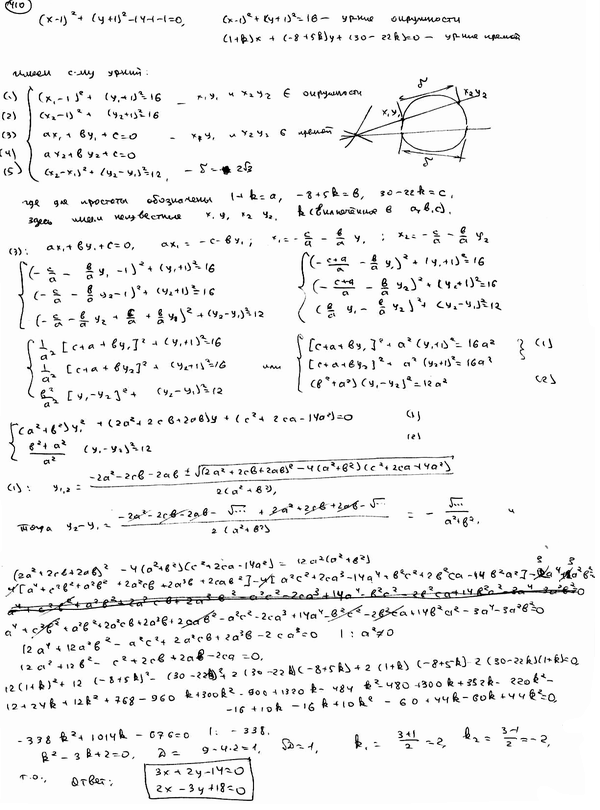 410
(x-1)² + (y+1)² - 14 - 1 - 1 = 0, (x-1)² + (y+1)² = 16 — ур-ние окружности
(1+k)x + (-8+5k)y + (30-22k) = 0 — ур-ние прямой
имеем с-му ур-ний:
(1) (x₁-1)² + (y₁+1)² = 16 — x₁y₁ и x₂y₂ ∈ окружности
(2) (x₂-1)² + (y₂+1)² = 16
(3) ax₁ + by₁ + c = 0 — x₁y₁ и x₂y₂ ∈ прямой
(4) ax₂ + by₂ + c = 0
(5) (x₂-x₁)² + (y₂-y₁)² = 12, — δ = 2√3
δ
x₁y₁
x₂y₂
δ
где для простоты обозначены 1+k=a, -8+5k=b, 30-22k=c,
здесь имеем неизвестные x₁ y₁ x₂ y₂, k (включённое в a, b, c).
(3): ax₁+by₁+c=0, ax₁ = -c-by₁; x₁ = -c/a - b/a y₁; x₂ = -c/a - b/a y₂
(-c/a - b/a y₁ - 1)² + (y₁+1)² = 16 (-(c+a)/a - b/a y₁)² + (y₁+1)² = 16
(-c/a - b/a y₂ - 1)² + (y₂+1)² = 16 (-(c+a)/a - b/a y₂)² + (y₂+1)² = 16
(-c/a - b/a y₂ + c/a + b/a y₁)² + (y₂-y₁)² = 12 (b/a y₁ - b/a y₂)² + (y₂-y₁)² = 12
1/a² [c+a+by₁]² + (y₁+1)² = 16 [c+a+by₁]² + a²(y₁+1)² = 16a² (1)
1/a² [c+a+by₂]² + (y₂+1)² = 16 или [c+a+by₂]² + a²(y₂+1)² = 16a²
b²/a² [y₁-y₂]² + (y₂-y₁)² = 12 (b²+a²)(y₁-y₂)² = 12a² (2)
(a²+b²)y₁² + (2a²+2cb+2ab)y + (c²+2ca-14a²) = 0 (1)
(b²+a²)/a² (y₁-y₂)² = 12 (2)
(1): y₁,₂ = (-2a²-2cb-2ab ± √((2a²+2cb+2ab)² - 4(a²+b²)(c²+2ca+14a²))) / 2(a²+b²),
тогда y₂-y₁ = (-2a²-2cb-2ab - √... + 2a²+2cb+2ab - √...) / 2(a²+b²) = - √... / (a²+b²), и
(2a²+2cb+2ab)² - 4(a²+b²)(c²+2ca-14a²) = 12a²(a²+b²)
a⁴+c²b²+a²b²+2a²cb+2a³b+2cab²-a²c²-2ca³+14a⁴-b²c²-2b²ca+14b²a²-3a⁴-3a²b²=0
12a⁴+12a²b²-a²c²+2a²cb+2a³b-2ca³=0 | : a²≠0
12a²+12b²-c²+2cb+2ab-2ca=0,
12(1+k)²+12(-8+5k)²-(30-22k)²+2(30-22k)(-8+5k)+2(1+k)(-8+5k)-2(30-22k)(1+k)=0
12+24k+12k²+768-960k+300k²-900+1320k-484k²-480+300k+352k-220k²-
-16+10k-16k+10k²-60+44k-60k+44k²=0,
-338k²+1014k-676=0 | : -338.
k²-3k+2=0, D=9-4·2=1, √D=1, k₁=(3+1)/2=2, k₂=(3-1)/2=-2,
т.о., Ответ: 3x+2y-14=0
2x-3y+18=0